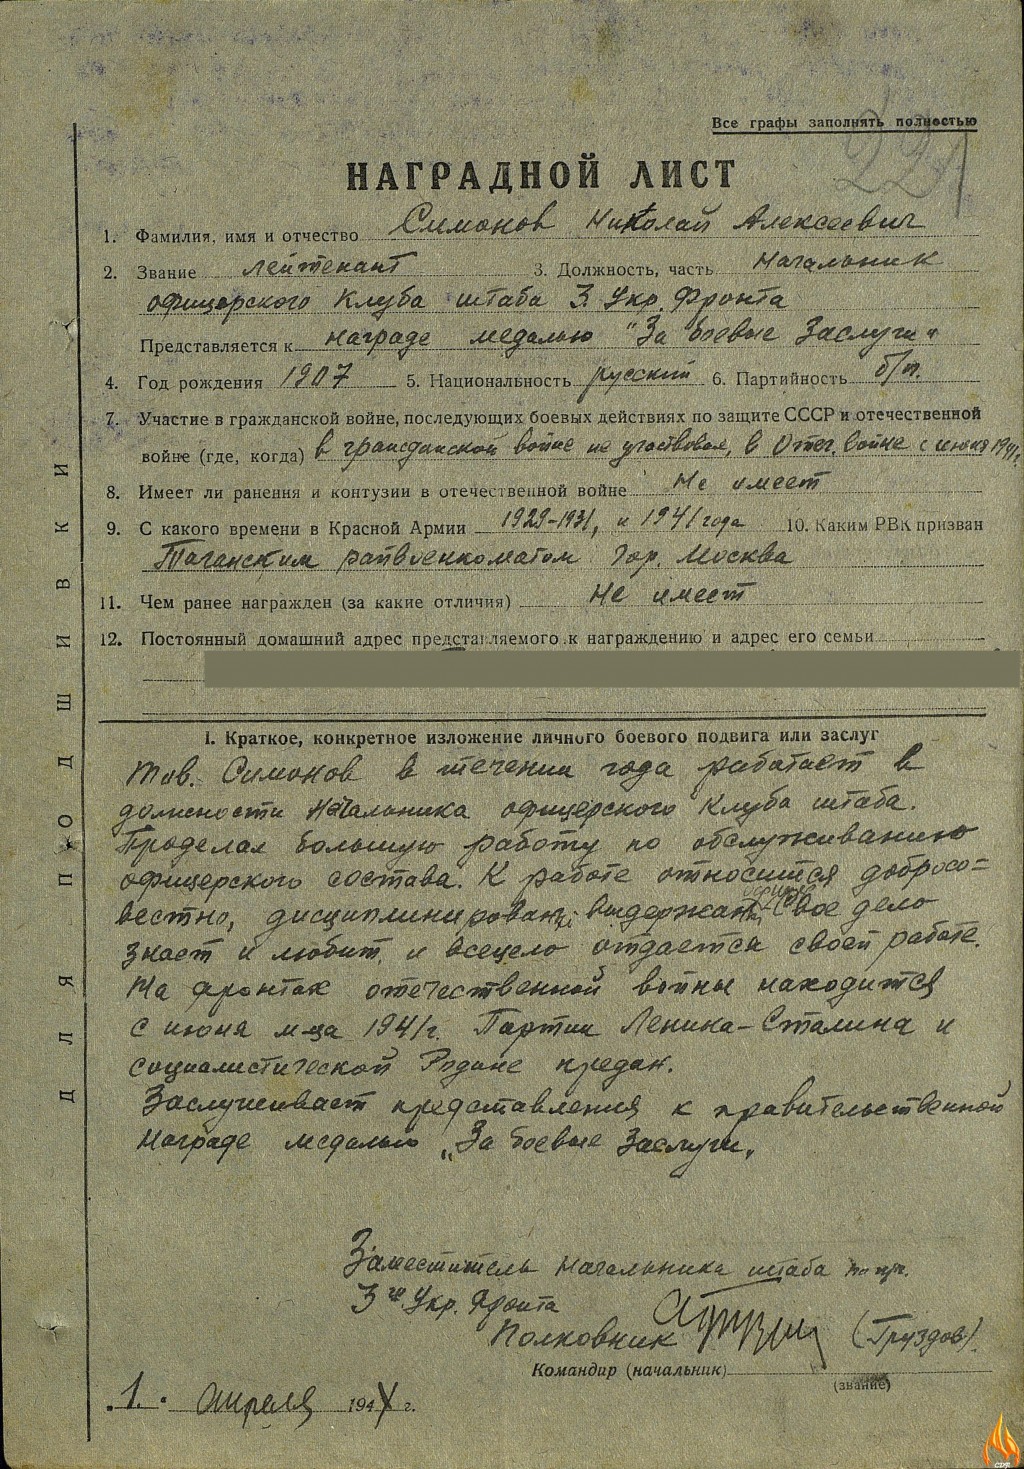 Все графы заполнять полностью
НАГРАДНОЙ ЛИСТ
1. Фамилия, имя и отчество Симонов Николай Алексеевич
2. Звание лейтенант 3. Должность, часть Начальник
офицерского клуба штаба 3. Укр. Фронта
Представляется к награде медалью "За боевые Заслуги"
4. Год рождения 1907 5. Национальность русский 6. Партийность б/п.
7. Участие в гражданской войне, последующих боевых действиях по защите СССР и отечественной
войне (где, когда) в гражданской войне не участвовал, в Отеч. войне с июня 1941г.
8. Имеет ли ранения и контузии в отечественной войне Не имеет
9. С какого времени в Красной Армии 1929-1931, и 1941 года 10. Каким РВК призван
Таганским райвоенкоматом гор. Москва
11. Чем ранее награжден (за какие отличия) Не имеет
12. Постоянный домашний адрес представляемого к награждению и адрес его семьи
ДЛЯ ПОДШИВКИ
I. Краткое, конкретное изложение личного боевого подвига или заслуг
Тов. Симонов в течении года работает в
должности Начальника офицерского клуба штаба.
Проделал большую работу по обслуживанию
офицерского состава. К работе относится добросо=
вестно, дисциплинирован, выдержан Свое дело
знает и любит, и всецело отдается своей работе.
На фронтах отечественной войны находится
с июня м-ца 1941г. Партии Ленина-Сталина и
социалистической Родине предан.
Заслуживает представления к правительственной
награде медалью „За боевые Заслуги„
Заместитель Начальника штаба
3го Укр. Фронта
Полковник (Груздов).
Командир (начальник)
(звание)
.1. апреля 1944 г.
CDF